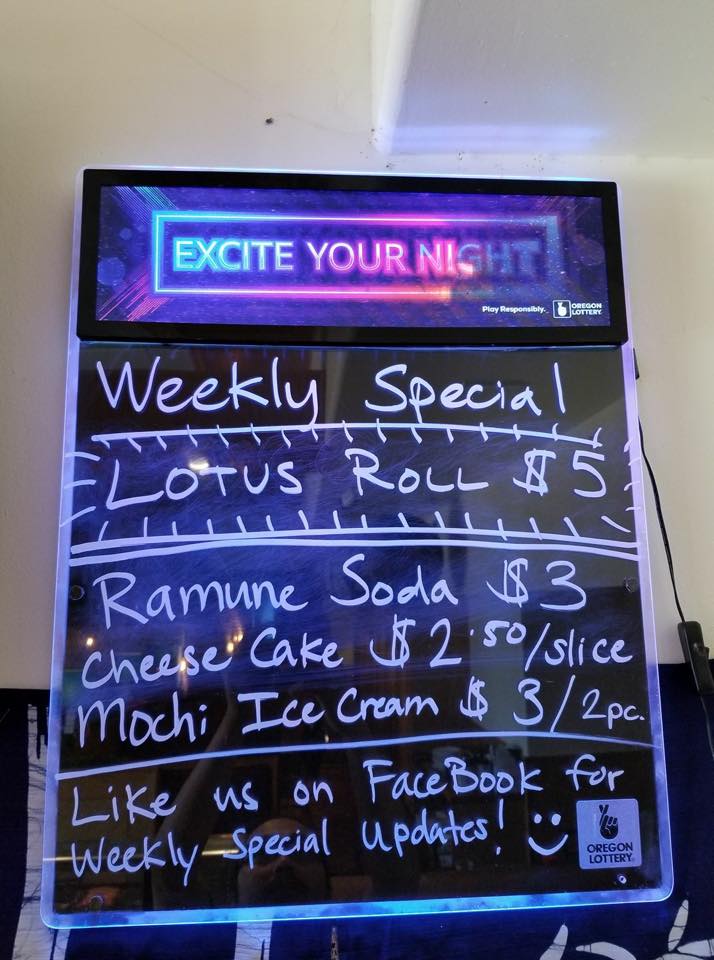 EXCITE YOUR NIGHT
Play Responsibly.
OREGON
LOTTERY
Weekly Special
LOTUS ROLL $5
Ramune Soda $3
Cheese Cake $2.50/slice
Mochi Ice Cream $3/2pc.
Like us on FaceBook for
Weekly Special Updates! :)
OREGON
LOTTERY